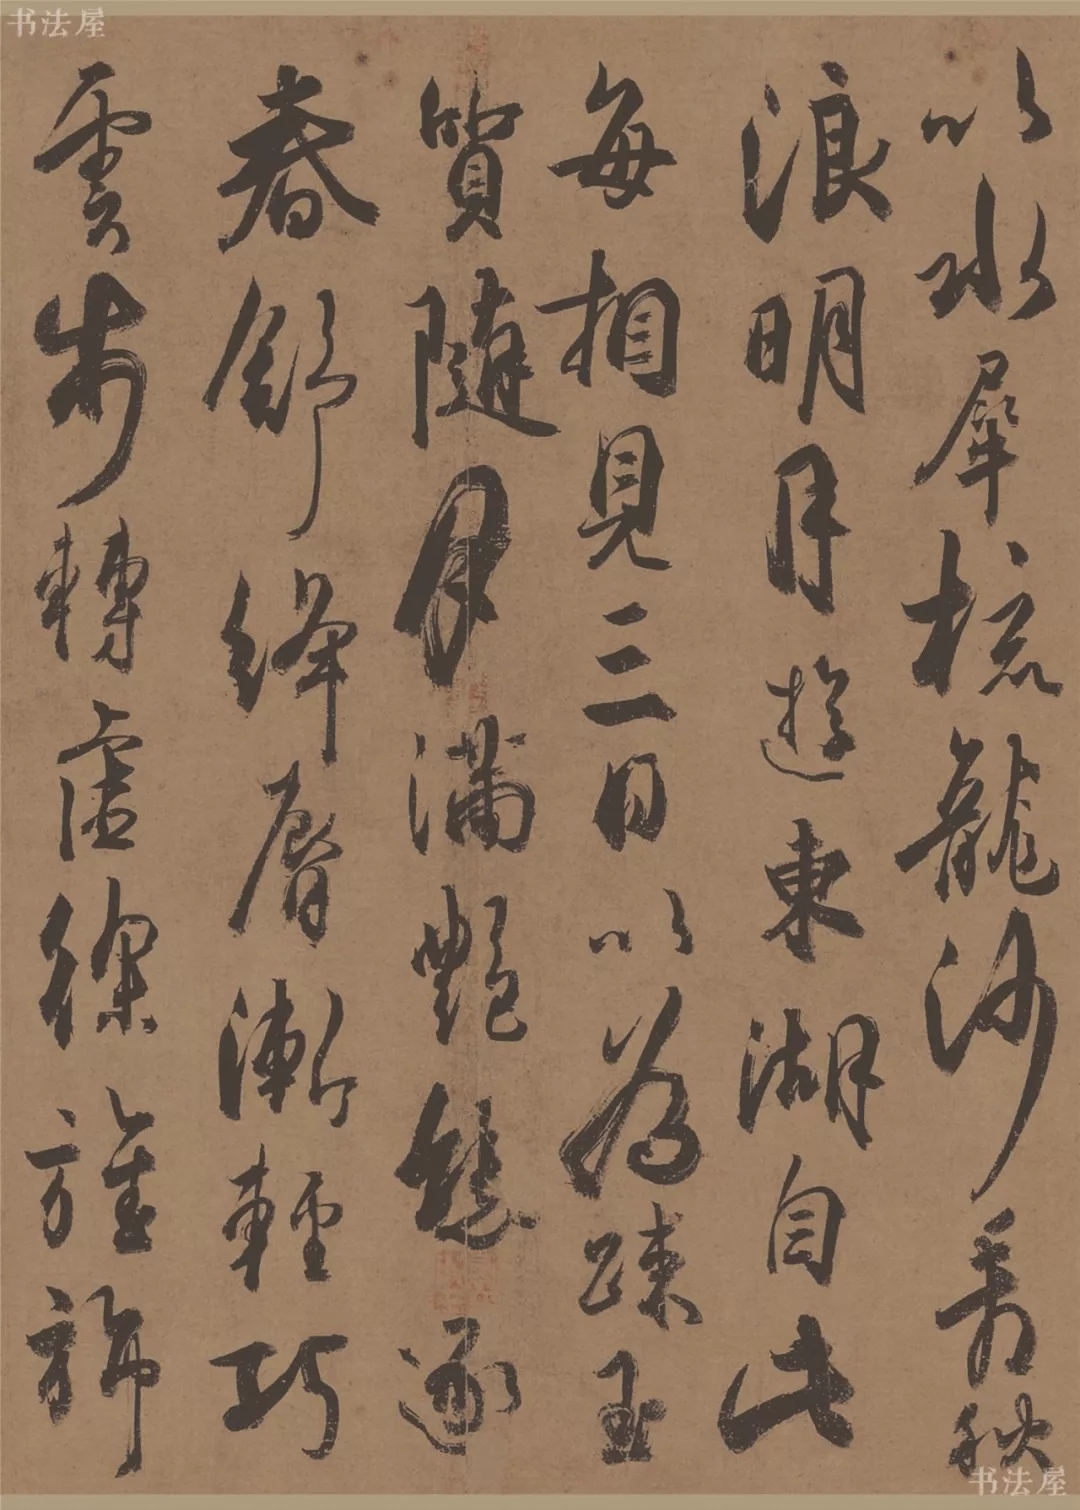 书法屋
以水犀梳龍沙看秋
浪明月遊東湖自此
每相見三日以為踈玉
質隨月滿艷態逐
春舒絳脣漸輕巧
雲步轉虛徐旌旆
书法屋